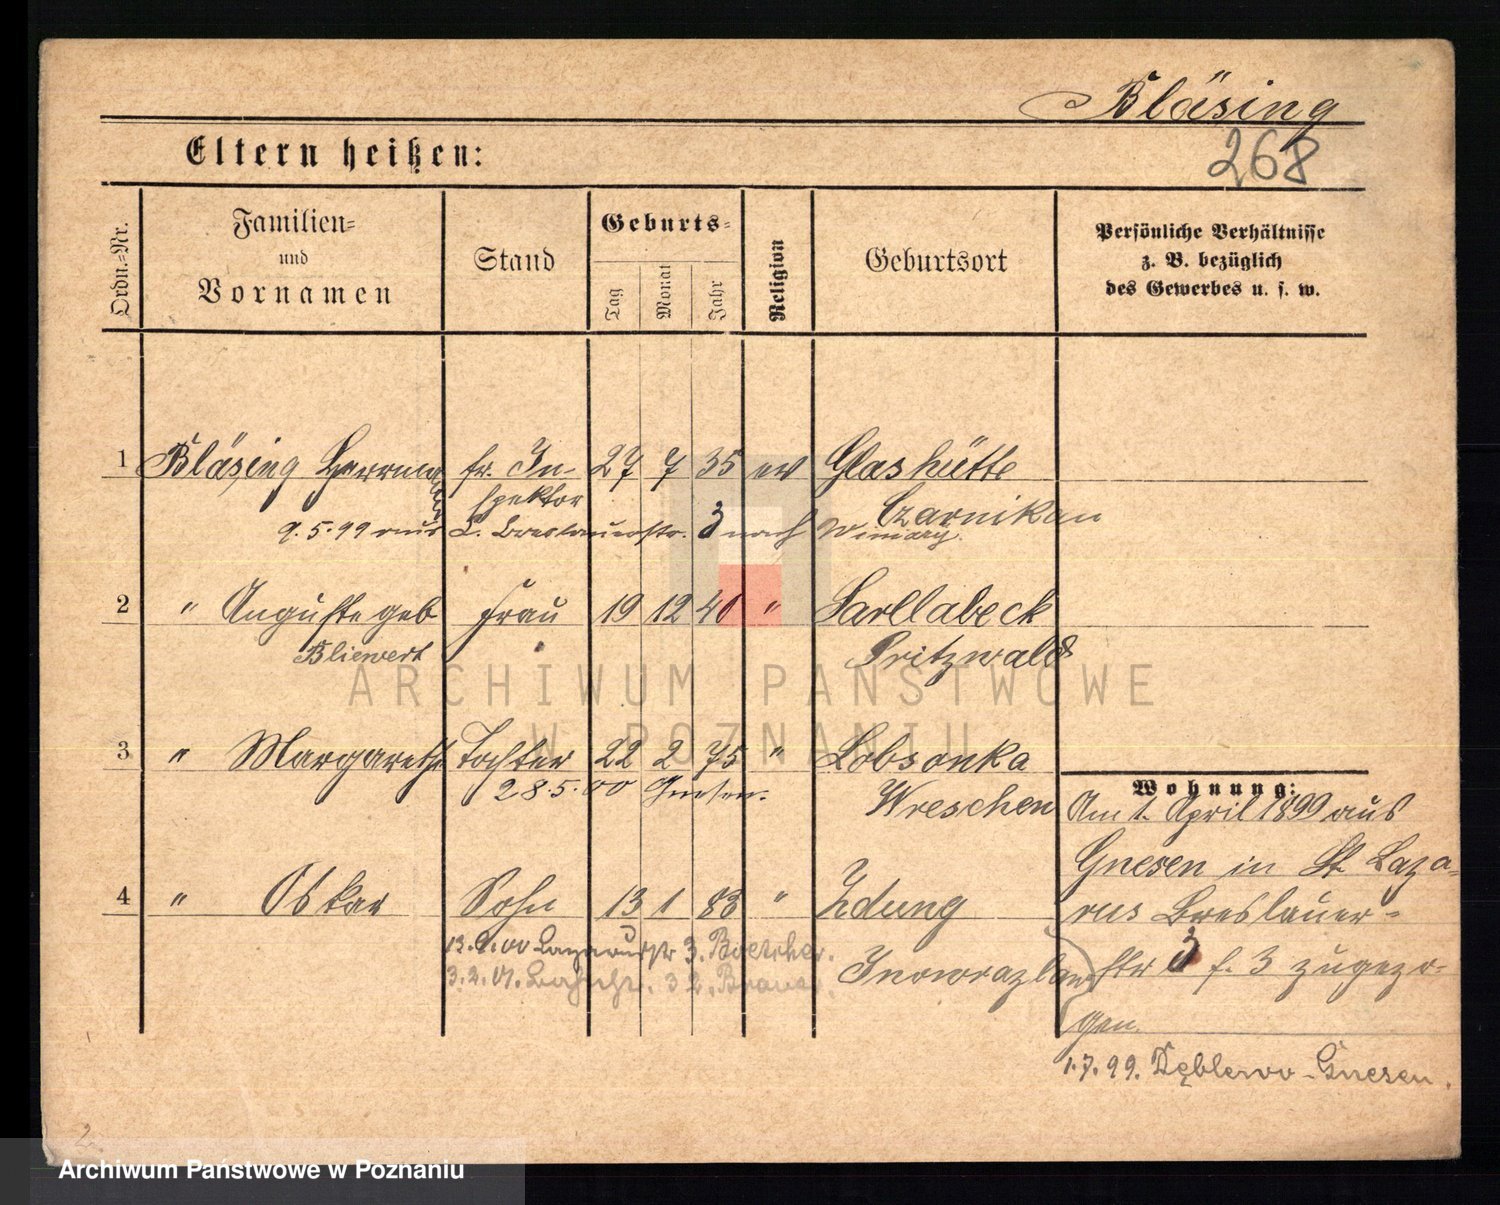 Bläsing
268
Eltern heißen:
Ordn.-Nr.
Familien-
und
Vornamen
Stand
Geburts-
Tag
Monat
Jahr
Religion
Geburtsort
Persönliche Verhältnisse
z. B. bezüglich
des Gewerbes u. s. w.
1 Bläsing Herrmann fr. In- 27 7 35 ev Glashütte
spektor Czarnikau
9.5.99 aus L. Breslauerstr. 3 nach Winiary.
2 " Auguste geb Frau 19 12 40 " Sarllabeck
Bliewert Pritzwald
ARCHIWUM PAŃSTWOWE
W POZNANIU
3 " Margarethe Tochter 22 2 75 " Lobsonka
28.5.00 Gnesen. Wreschen
Wohnung:
Am 1. April 1899 aus
Gnesen in St. Laza-
rus Breslauer-
str 3 f. 3 zugezo-
gen.
4 " Oskar Sohn 13 1 83 " Zdung
Inowrazlaw
3. Boetcher.
3.2.01. 3 2. Brauer.
1.7.99. Dęblewo-Gnesen.
2
Archiwum Państwowe w Poznaniu